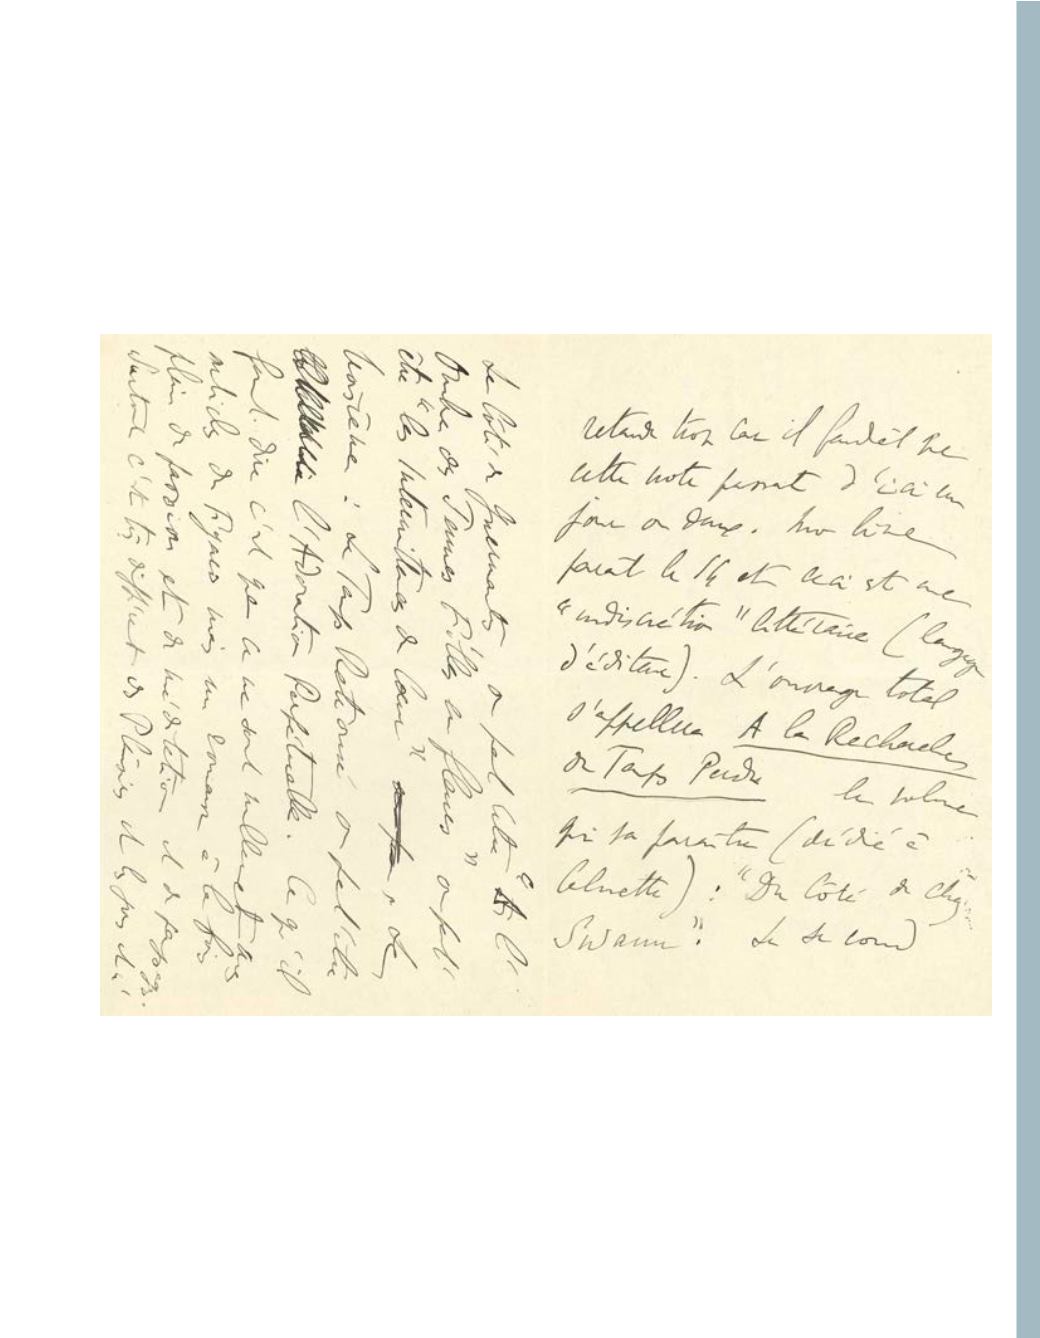 retarde trop car il faudrait que
cette note passât d'ici un
jour ou deux. Mon livre
paraît le 14 et ceci est une
"indiscrétion" littéraire (langage
d'éditeur). L'ouvrage total
s'appellera A la Recherche
du Temps Perdu le volume
qui va paraître (dédié à
Calmette) : "Du Côté de chez
Swann". Le second
Le Côté de Guermantes ou peut'être A l'
Ombre des Jeunes Filles en fleurs" ou peut
être "les Intermittences du Cœur". Le
troisième : Le Temps Retrouvé ou peut'être
l'Adoration Perpétuelle. Ce qu'il
faut dire c'est que ce ne sont nullement des
articles du Figaro mais un roman à la fois
plein de passion et de méditation et de paysages.
Surtout c'est très différent des Plaisirs et les Jours et